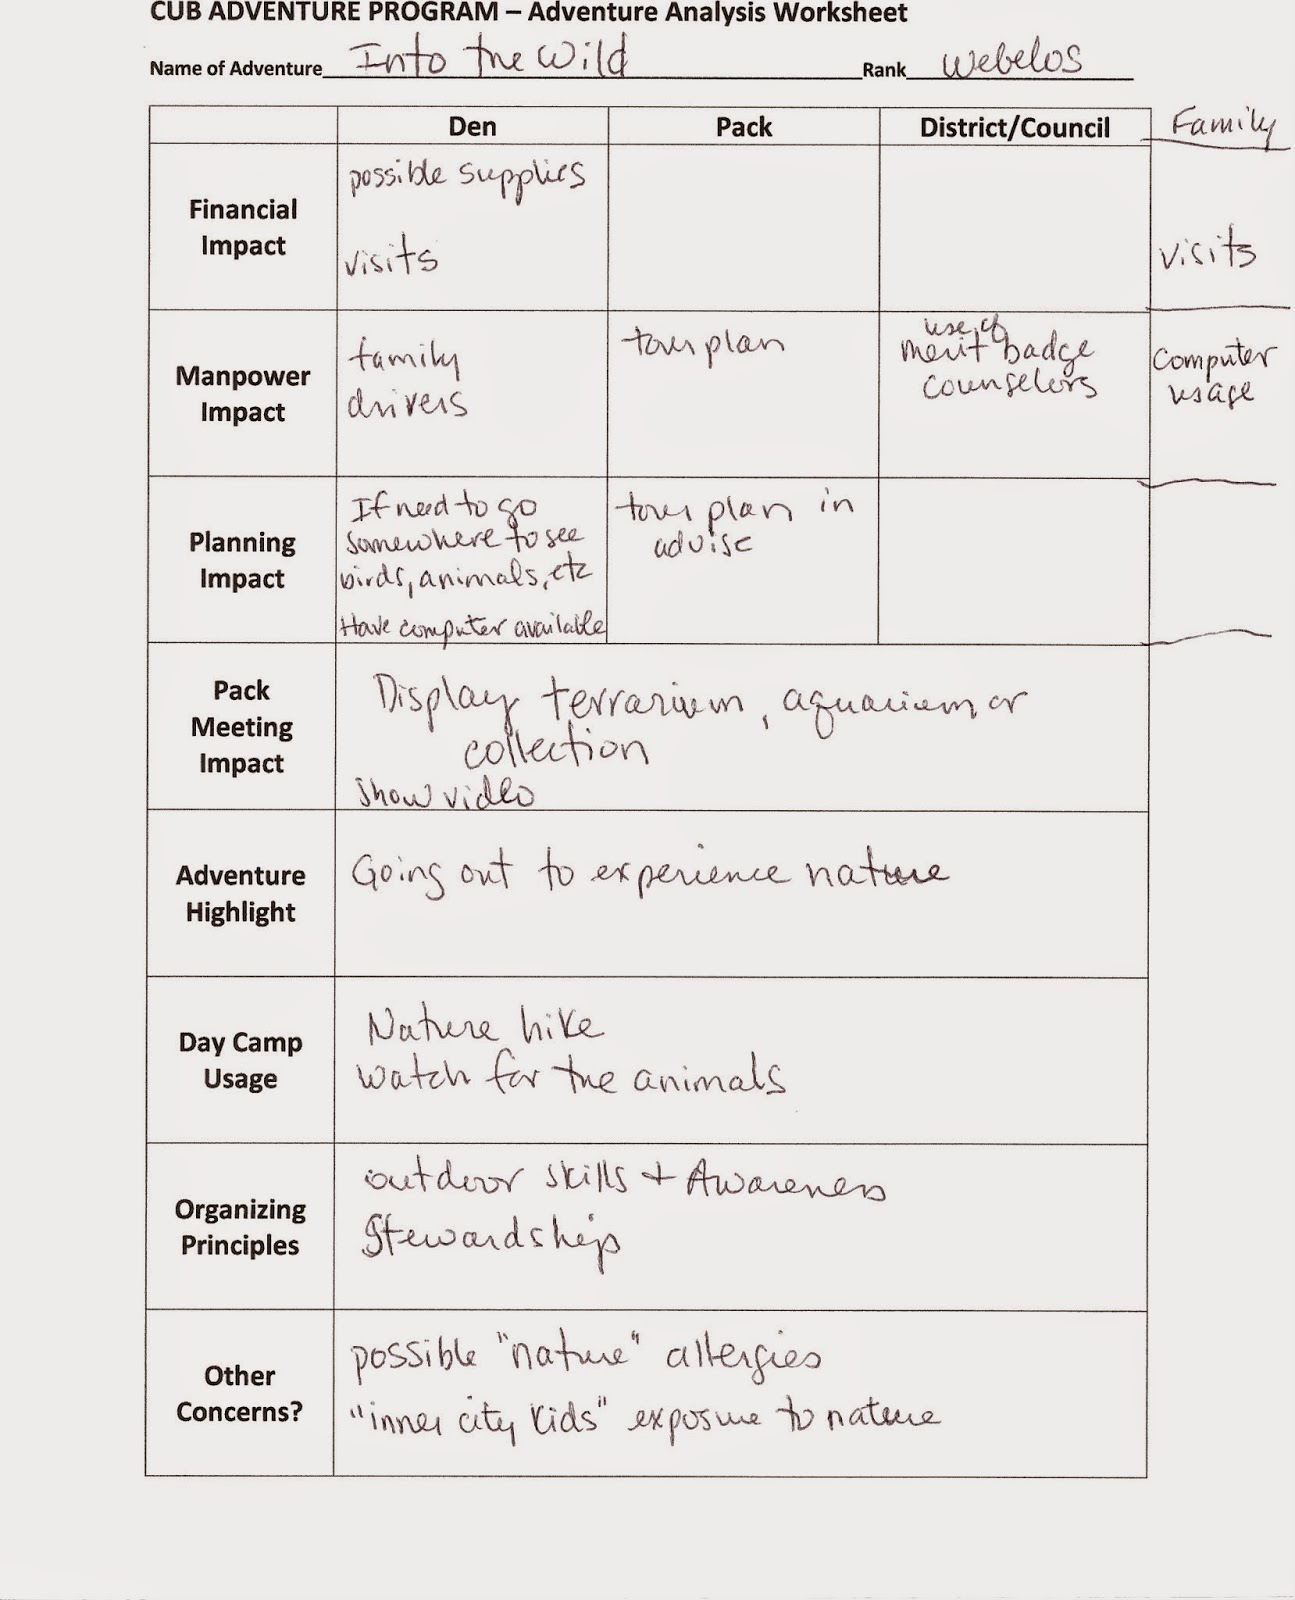 CUB ADVENTURE PROGRAM – Adventure Analysis Worksheet
Name of Adventure Into the Wild Rank Webelos
Den Pack District/Council Family
Financial Impact
possible supplies
visits
visits
Manpower Impact
family
drivers
tour plan
use of
merit badge
counselors
Computer
usage
Planning Impact
If need to go
somewhere to see
birds, animals, etc
Have computer available
tour plan in
advise
Pack Meeting Impact
Display terrarium, aquarium or
collection
show video
Adventure Highlight
Going out to experience nature
Day Camp Usage
Nature hike
Watch for the animals
Organizing Principles
outdoor skills + Awareness
Stewardship
Other Concerns?
possible "nature" allergies
"inner city kids" exposure to nature